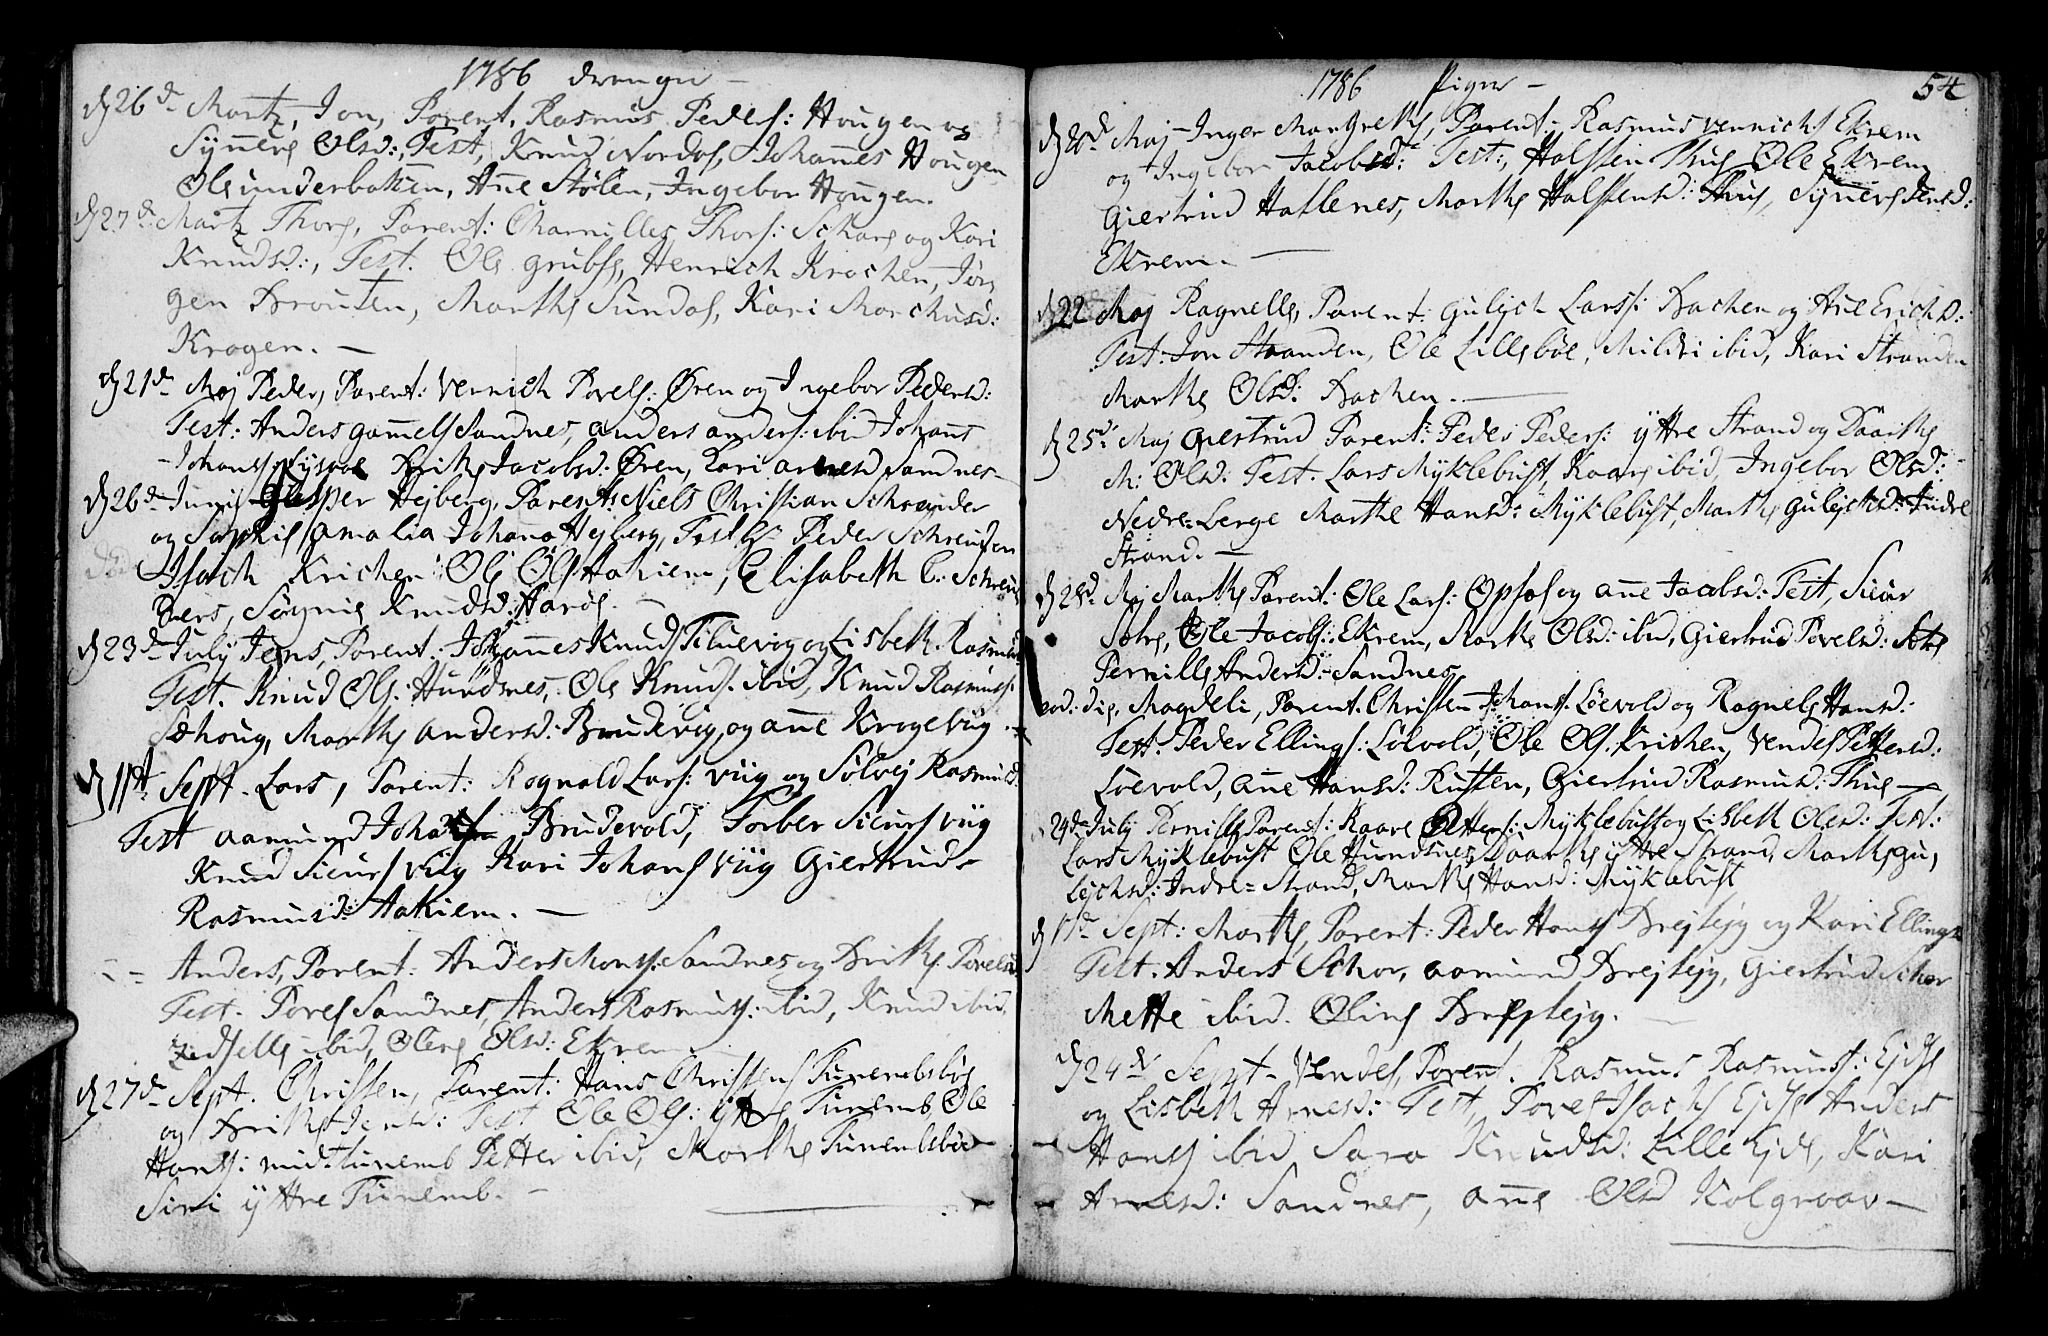 1786 drenger —
d 26 d Martz, Jon, Parent. Rasmus Peders: Hougen og
Synneve Olsd:, Test, Knud Nordal, Johannes Hougen
Ole underbakken, Ane Stølen, Ingebor Hougen.
d 27 d Martz Thore, Parent: Thors: og Kari
Knudsd:, Test. Ole grubse, Henrich Krochen, Jør,
gen Brouten, Marthe Sundal, Kari Marchusd:
Krogen. —
d 21 d Maj Peder, Parent: Vernich Povels: Øren og Ingebor Pedersd:
Test: Anders gamels Sandnes, anders anders: ibid Johans
Johans Brithe Jacobsd: Øren, Kari Sandnes
d 26 d Junii Hejberg, Parent: Niels Christian Schreuder
og Amalia Johana Hejberg, Test Peder Schreuder
Isach Krichen Ole Ols Aahiem, Elisabeth C: Schreu
ders, Knudsd: Harøe. —
d 23 d July Jens, Parent: Johannes Knuds og Lisbeth Rasmusd
Test. Knud Ols: Hundsnes, Ole Knuds: ibid, Knud Rasmuss:
Søhoug, Marthe andersd: Brudevig, og ane Krogeviig
d 11 te Sept. Lars, Parent: Rognald Lars: Viig og Sølvej Rasmusd:
Test aamund Brudevold, Torber Siurs Viig
Knud Siurs Viig Kari Johans Viig Giertrud
Rasmusd: Aahiem. —
Anders, Parent: Anders Mons: Sandnes og Brithe Povelsd
Test. Povel Sandnes, Anders Rasmuss: ibid, Knud ibid,
Zidselle ibid, Olsd: Ekrem
d 27 d Sept. Christen, Parent: Hans Christens Tunembsbøe
og Brithe Jensd: Test Ole Ols: yttre Tunemb, Ole
Hans: mid: tunemb Petter ibid, Marthe Tunembsbøe
Siri yttre Tunemb. —
1786 Piger —
54
d Maj Inger Margrethe, Parent: Rasmus Vernichs Ekrem
og Ingebor Jacobsd: Test:, Halsten Thue Ole Ekrem
Giertrud Hattenes, Marthe Halstensd: Thue, Synneve Jensd:
Ekrem. —
d 22 Maj Ragnelle, Parent: gulich Lars: Bachen og Ane Erichsd:
Test: Jon Stranden, Ole Lillebøe, Mildri ibid, Kari Stranden
Marthe Olsd: Bachen. —
d 25 d Maj giertrud Parent: Peder Peders: yttre Strand og Daarthe
M: Olsd: Test. Lars Myklebust, Kaare ibid, Ingebor Olsd:
Nedre-Lerge Marthe Hansd: Myklebust, Marthe gulichsd: Indre
Strand. —
d 28 d. Maj Marthe Parent: Ole Lars: Opsal og ane Jacobsd: Test, Siur
Sotre, Ole Jacobs: Ekrem, Marthe Olsd: ibid, Giertrud Povelsd: Sotre
Pernille Andersd: Sandnes
eod: die, Magdeli, Parent: Christen Johans: Løevold og Ragnele Hansd:
Test: Peder Ellings: Løevold, Ole Ols: Krichen, Vendel Pettersd:
Løevold, ane Hansd: Rusten, Giertrud Rasmusd: Thue —
24 d July Pernille Parent: Kaare Petters: Myklebust og Lisbeth Olsd: Test:
Lars Myklebust Ole Hundsnes Daarthe yttre Strand, Marthe gu,
lichsd: Indre-Strand, Marthe Hansd: Myklebust
d 17 d Sept: Marthe, Parent: Peder Hans Brejtejg og Kari Ellings
Test: Anders Schor, aamund Brejtejg, Giertrud Schor
Mette ibid. Oline Brejtejg. —
d 24 d Sept. Vendel, Parent. Rasmus Rasmuss: Ejde
og Lisbeth Arnesd: Test, Povel Isachs Ejde Anders
Hans ibid Sara Knudsd: Lille Ejde, Kari
Arnesd: Sandnes, ane Olsd Kolgroav —